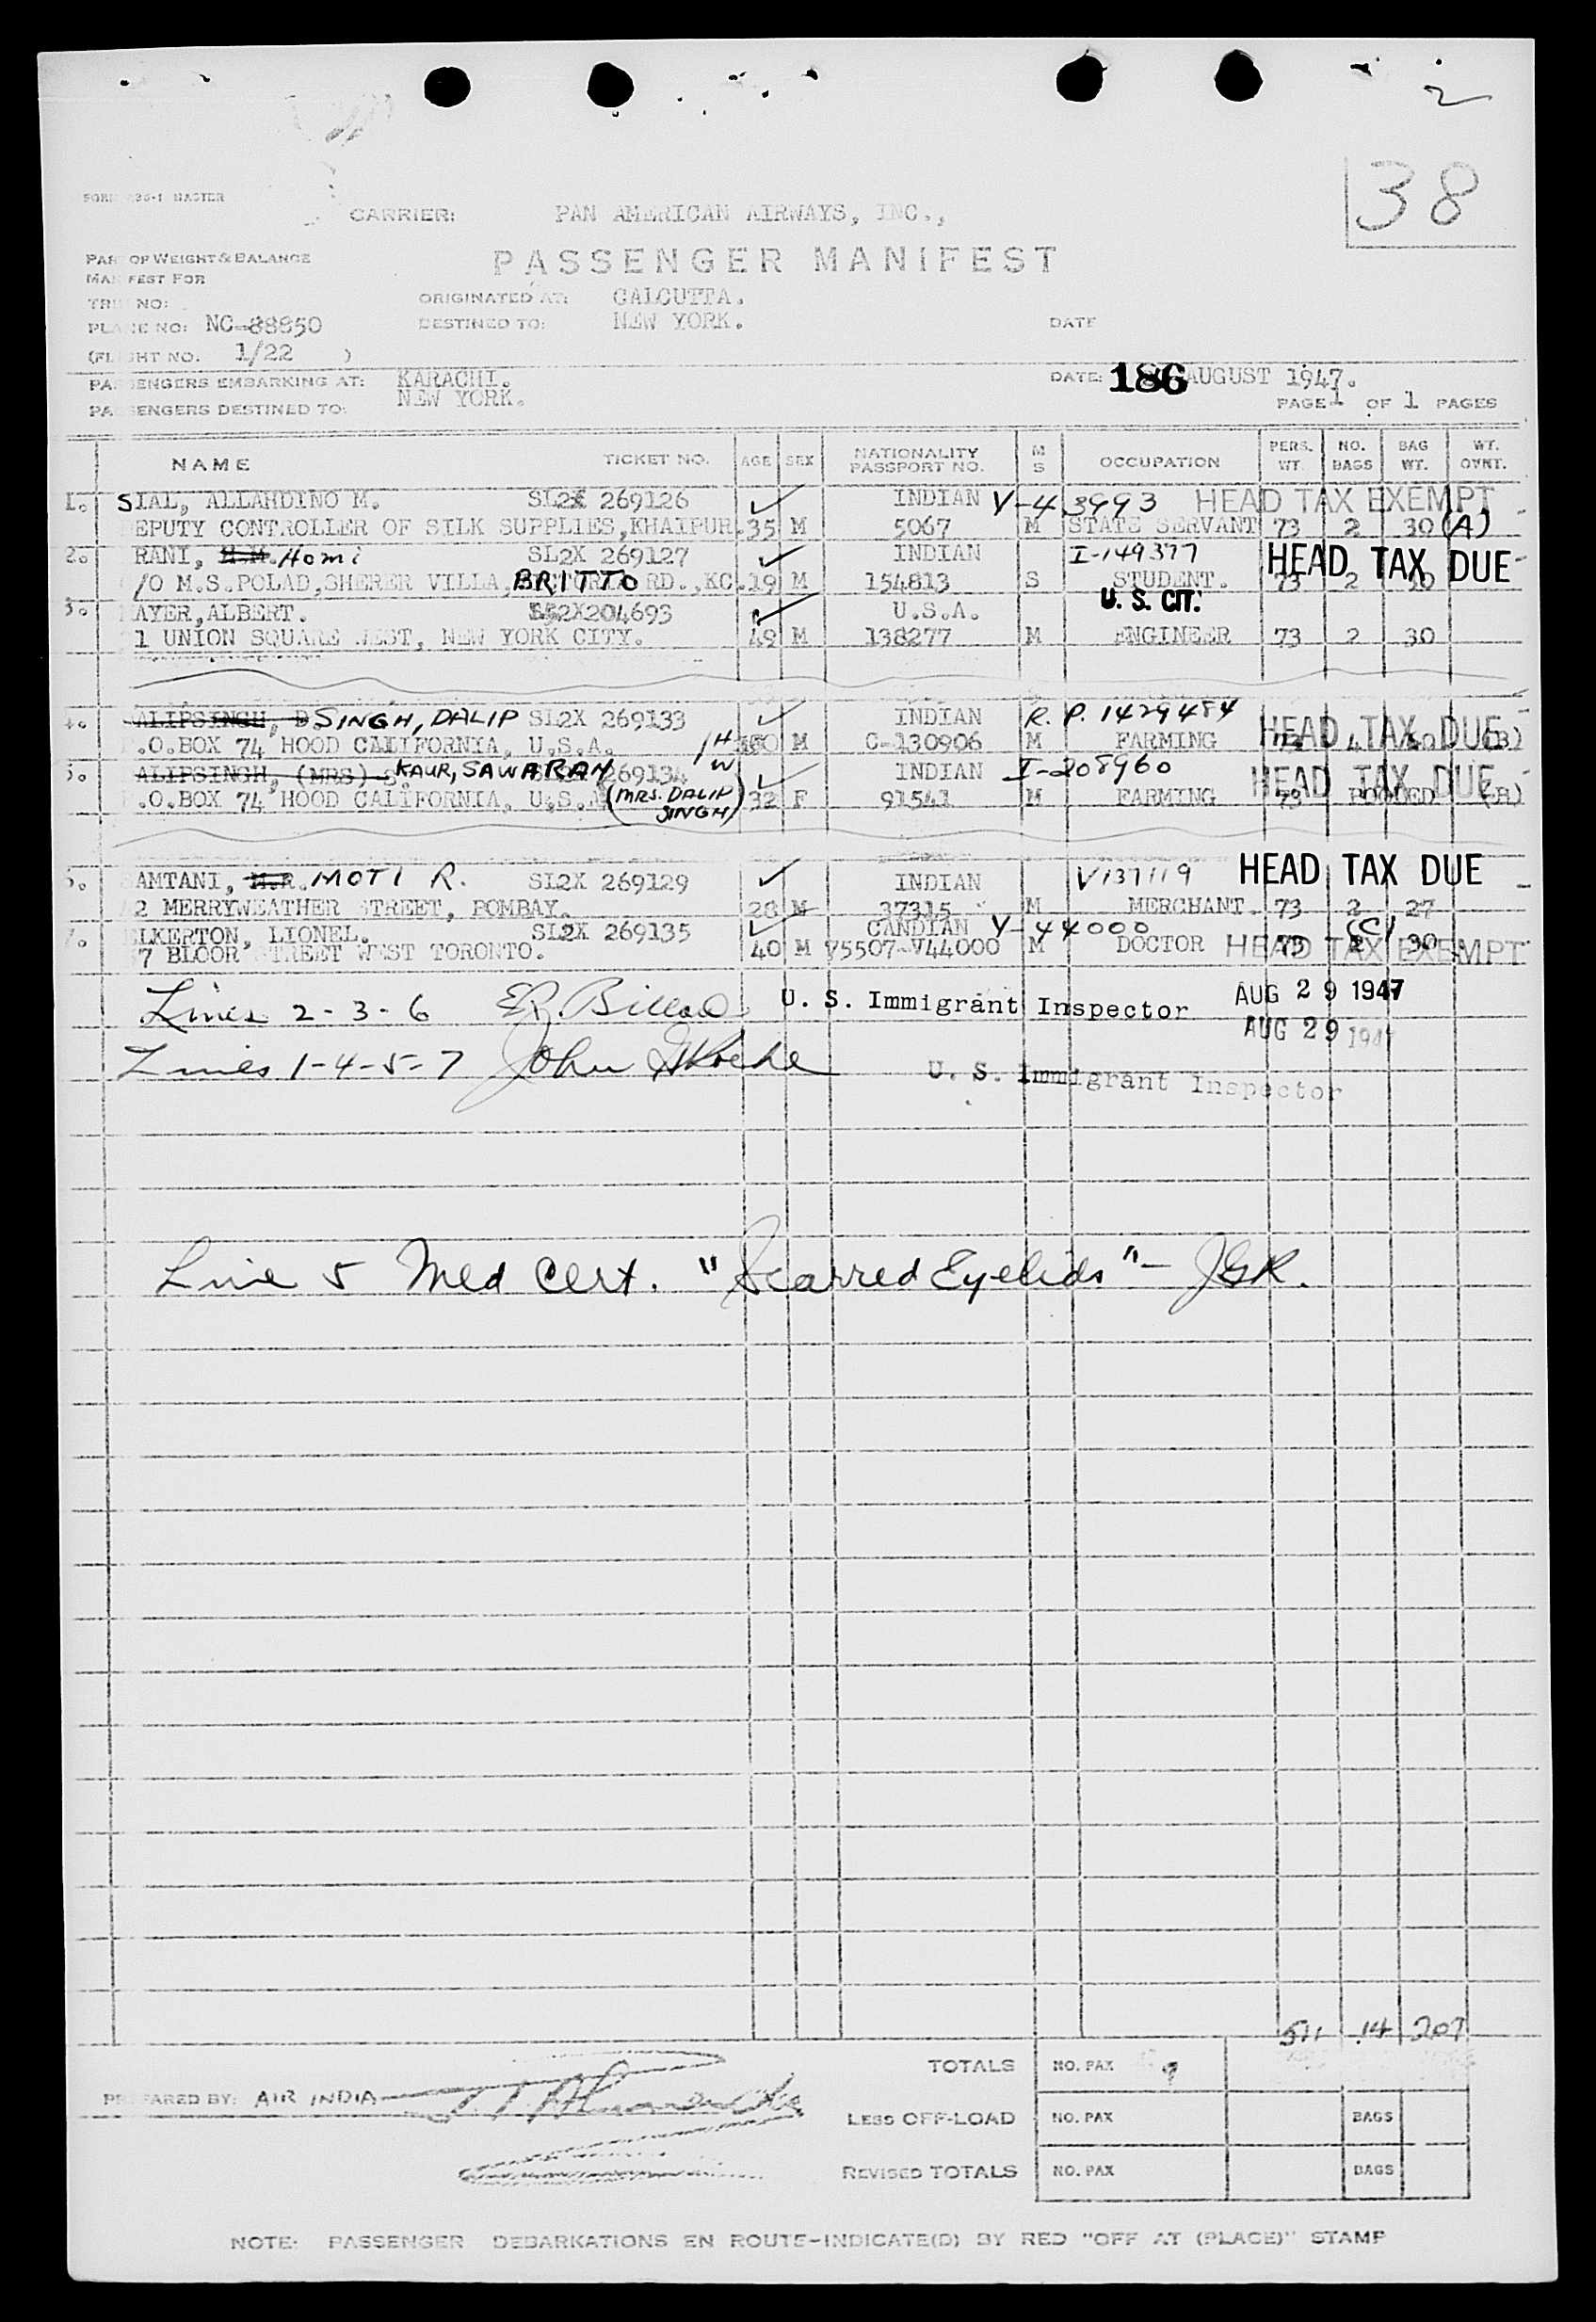 2
38
CARRIER: PAN AMERICAN AIRWAYS, INC.,
OF WEIGHT & BALANCE
PASSENGER MANIFEST
FEST FOR
NO:
ORIGINATED AT: CALCUTTA.
NO: NC-88850 DESTINED TO: NEW YORK. DATE
HT NO. 1/22 )
ENGERS EMBARKING AT: KARACHI. DATE: 186 AUGUST 1947.
ENGERS DESTINED TO: NEW YORK. PAGE 1 OF 1 PAGES
NAME TICKET NO. AGE SEX NATIONALITY PASSPORT NO. M S OCCUPATION PERS. WT. NO. BAGS BAG WT. WT. OVNT.
1. SIAL, ALLAHDINO M. SL2X 269126 INDIAN V-43993 HEAD TAX EXEMPT
EPUTY CONTROLLER OF SILK SUPPLIES,KHAIPUR. 35 M 5067 M STATE SERVANT 73 2 30 (A)
2. RANI, H.M. Homi SL2X 269127 INDIAN I-149377 HEAD TAX DUE
/O M.S.POLAD,SHERER VILLA, BRITTO RD.,KC. 19 M 154813 S STUDENT. 73 2
3. AYER,ALBERT. SL2X204693 U.S.A. U. S. CIT.
1 UNION SQUARE WEST, NEW YORK CITY. 49 M 138277 M ENGINEER 73 2 30
4. ALIPSINGH, D SINGH, DALIP SL2X 269133 INDIAN R.P. 1429484 HEAD TAX DUE
.O.BOX 74 HOOD CALIFORNIA, U.S.A. H M C-130906 M FARMING (B)
5. ALIPSINGH, (MRS) S KAUR, SAWARAN 269134 W INDIAN I-208960 HEAD TAX DUE
.O.BOX 74 HOOD CALIFORNIA, U.S.A (MRS. DALIP SINGH) 32 F 91541 M FARMING 73 POOLED (B)
AMTANI, H.R. MOTI R. SL2X 269129 INDIAN V137119 HEAD TAX DUE
2 MERRYWEATHER STREET, BOMBAY. 28 M 37315 M MERCHANT. 73 2 27
7. ELKERTON, LIONEL. SL2X 269135 CANDIAN V-44000 (C)
7 BLOOR STREET WEST TORONTO. 40 M V5507-V44000 M DOCTOR 73 2 30 HEAD TAX EXEMPT
Lines 2-3-6 U. S. Immigrant Inspector AUG 29 1947
AUG 29 1947
Lines 1-4-5-7 John U. S. Immigrant Inspector
Line 5 Med Cert. "Scarred Eyelids"- JGR.
511 14 207
TOTALS NO. PAX
PREPARED BY: AIR INDIA
LESS OFF-LOAD NO. PAX BAGS
REVISED TOTALS NO. PAX BAGS
NOTE: PASSENGER DEBARKATIONS EN ROUTE-INDICATE(D) BY RED "OFF AT (PLACE)" STAMP